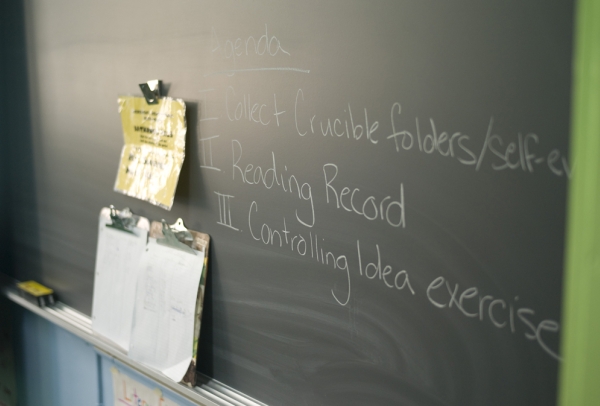 Agenda
I Collect Crucible folders/self-ev
II Reading Record
III. Controlling Idea exercise